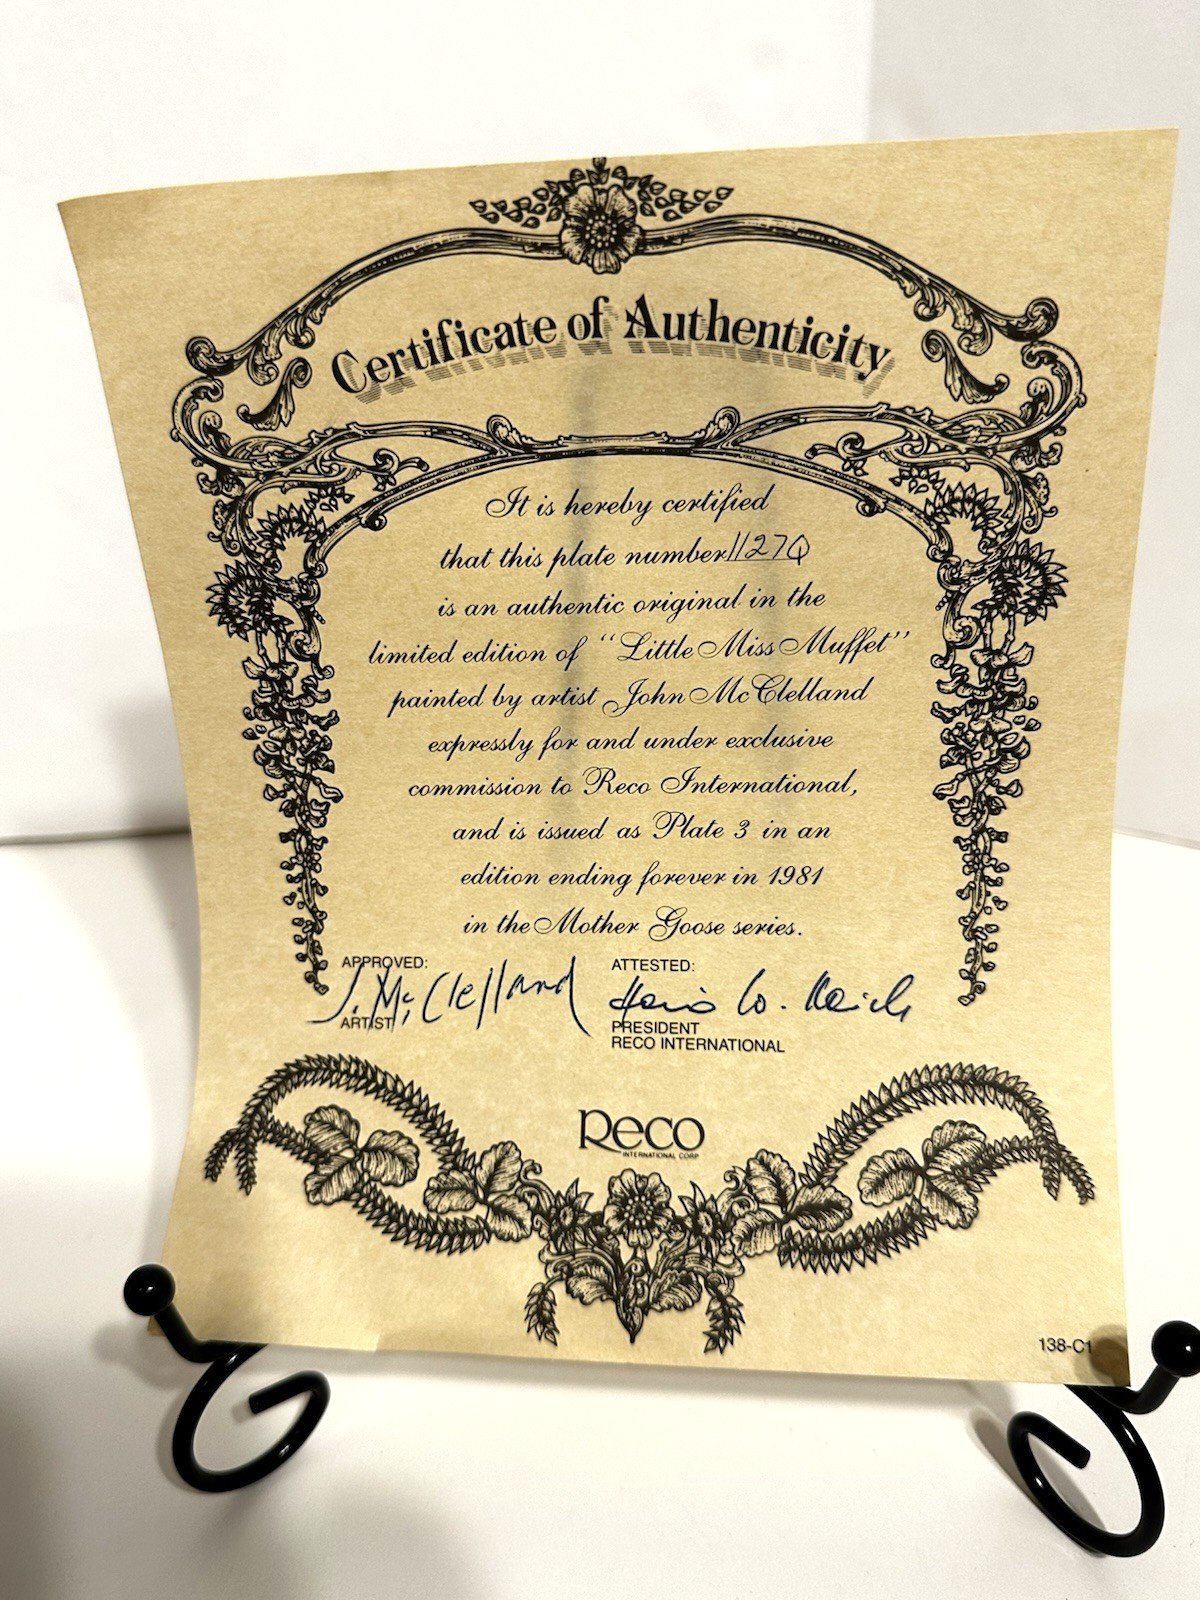 Certificate of Authenticity
It is hereby certified
that this plate number 1127Q
is an authentic original in the
limited edition of "Little Miss Muffet"
painted by artist John McClelland
expressly for and under exclusive
commission to Reco International,
and is issued as Plate 3 in an
edition ending forever in 1981
in the Mother Goose series.
APPROVED: ATTESTED:
J. McClelland
ARTIST PRESIDENT
RECO INTERNATIONAL
Reco
INTERNATIONAL CORP
138-C1